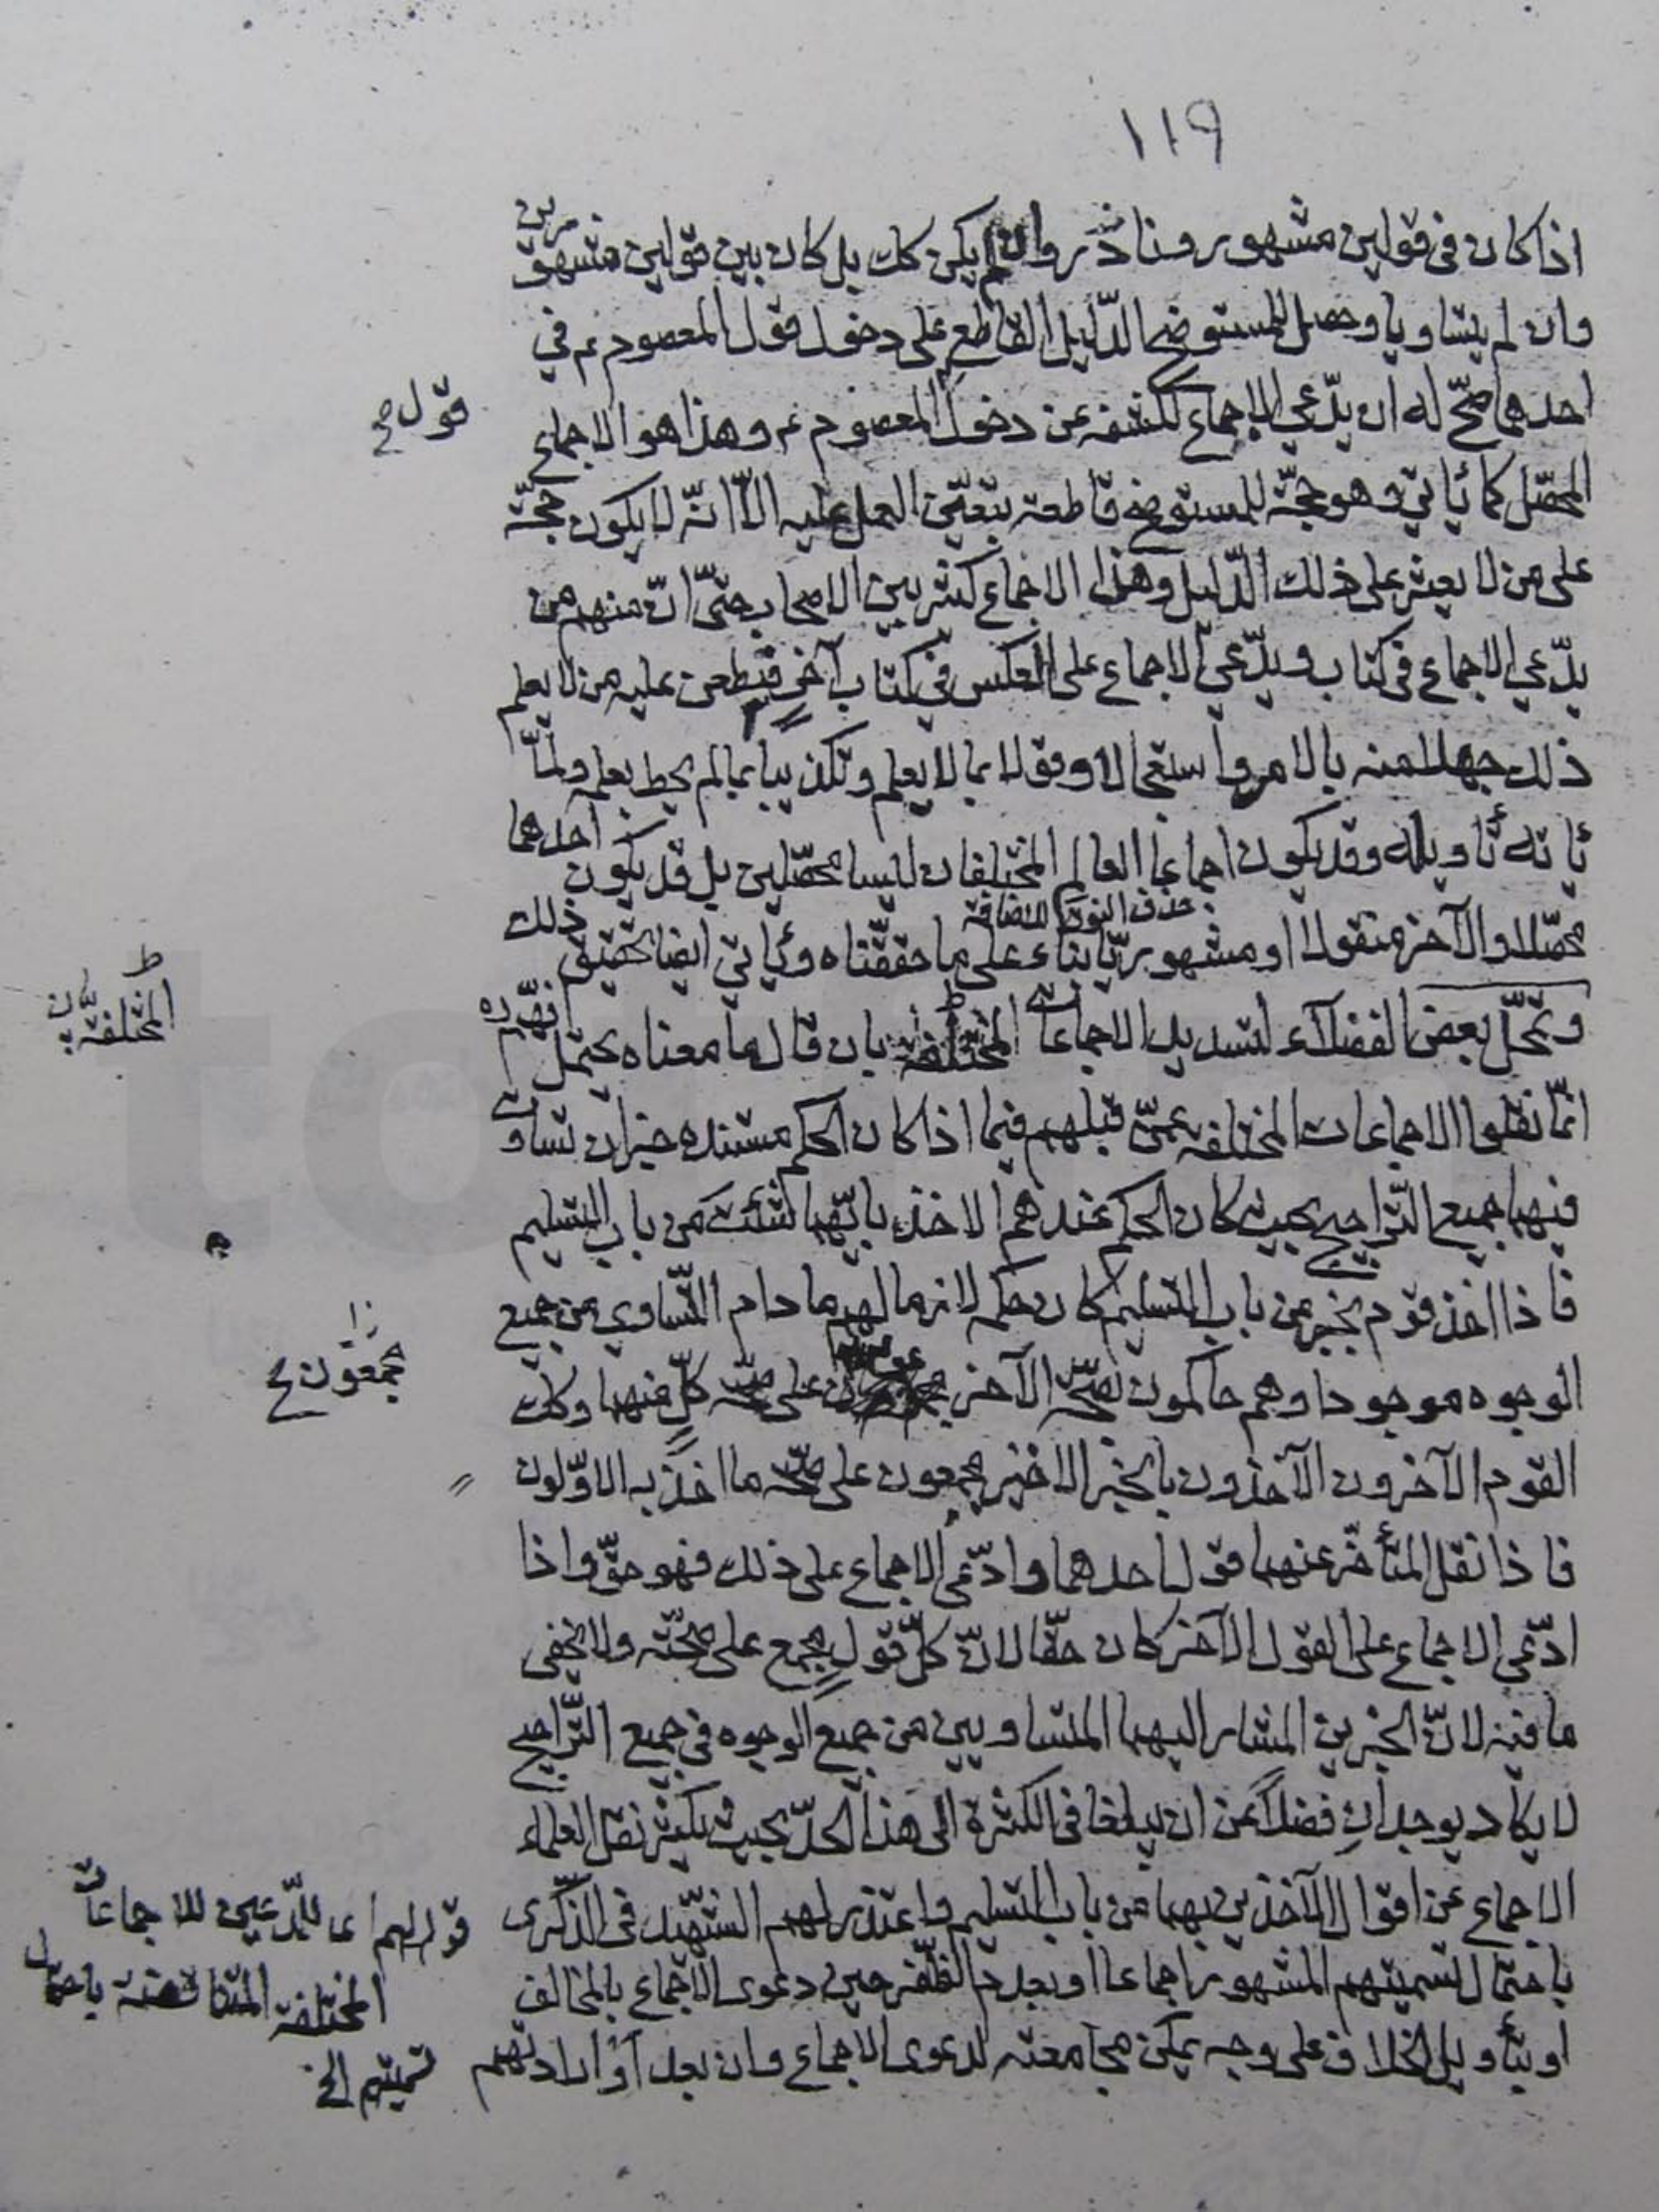 ١١٩
اذا كان فى قولين مشهور ونادر وان لم يكن كك بل كان بين قولين مشهورين
وان لم يتساويا وحصل للمستوضح الدّليل القاطع على دخول قول المعصوم ع في
احدهما صحّ له ان يدّعي الاجماع لكشفه عن دخول المعصوم ع وهذا هو الاجماع
قول صح
المحصّل كما يأتي وهو حجّة للمستوضح قاطعة يتعيّن العمل عليه الّا انّه لا يكون حجّة
على من لا يعثر على ذلك الدّليل وهذا الاجماع كثر بين الاصحاب حتّى انّ منهم من
يدّعي الاجماع فى كتاب ويدّعي الاجماع على العكس في كتاب آخر فيطعن عليه من لا يعلم
ذلك جهلا منه بالامر واستعجالا وقولا بما لا يعلم وتكذيبا بما لم يحط بعلمه ولمّا
يأته تأويله وقد يكون اجماعا العالم المختلفان ليسا محصّلين بل قد يكون احدهما
حذف النون للاضافة
محصّلا والآخر منقولا او مشهوريّا بناء على ما حققّناه ويأتي ايضا تحقيق ذلك
وتمحّل بعض الفضلاء لتسديد الاجماعات المختلفة بان قال ما معناه يحتمل انّهم ره
المختلفة ظ
انّما نقلوا الاجماعات المختلفة عمّن قبلهم فيما اذا كان الحكم مستنده خبران تساوى
فيهما جميع التّراجيح بحيث كان الحكم عندهم الاخذ بايّهما شئت من باب التسليم
فاذا اخذ قوم بخبر من باب التسليم كان حكمه لازما لهم ما دام التّساوي من جميع
الوجوه موجودا وهم حاكمون بصحّة الآخر مجمعون على صحّة كلّ منهما وكك
مجمعون صح
القوم الآخرون الآخذون بالخبر الاخير مجمعون على صحّة ما اخذ به الاوّلون
فاذا نقل المتأخّر عنهما قول احدهما وادّعى الاجماع على ذلك فهو حقّ واذا
ادّعى الاجماع على القول الآخر كان حقّا لانّ كلّ قولٍ مجمع على صحّته ولا يخفى
ما فيه لانّ الخبرين المشار اليهما المتساويين من جميع الوجوه فى جميع التّراجيح
لا يكاد يوجدان فضلاً عن ان يبلغا فى الكثرة الى هذا الحدّ بحيث يكثر نقل العلماء
الاجماع عن اقوال الآخذين بهما من باب التسليم واعتذر لهم الشّهيد فى الذّكرى
باحتمال تسميتهم المشهور اجماعا او بعدم الظّفر حين دعوى الاجماع بالمخالف
او بتأويل الخلاف على وجه يمكن مجامعته لدعوى الاجماع وان بعد او ارادتهم
قوله لهم اى للمدّعين للاجماعات
المختلفة المتناقضة باحتمال
تسميتهم الخ